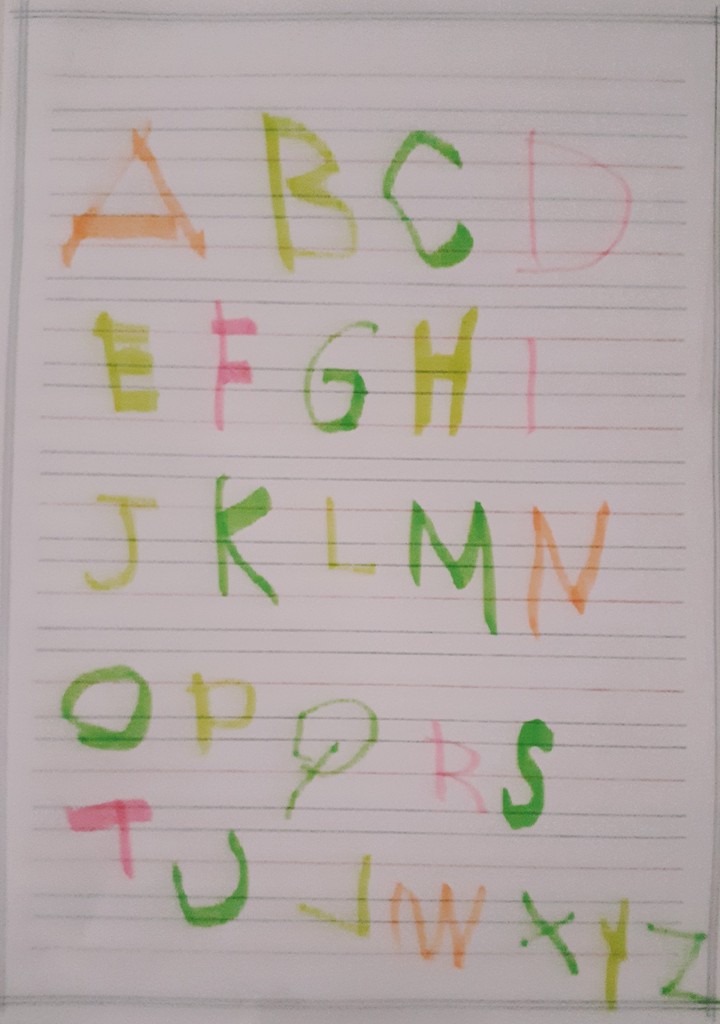 A B C D
E F G H I
J K L M N
O P Q R S
T U V W X Y Z